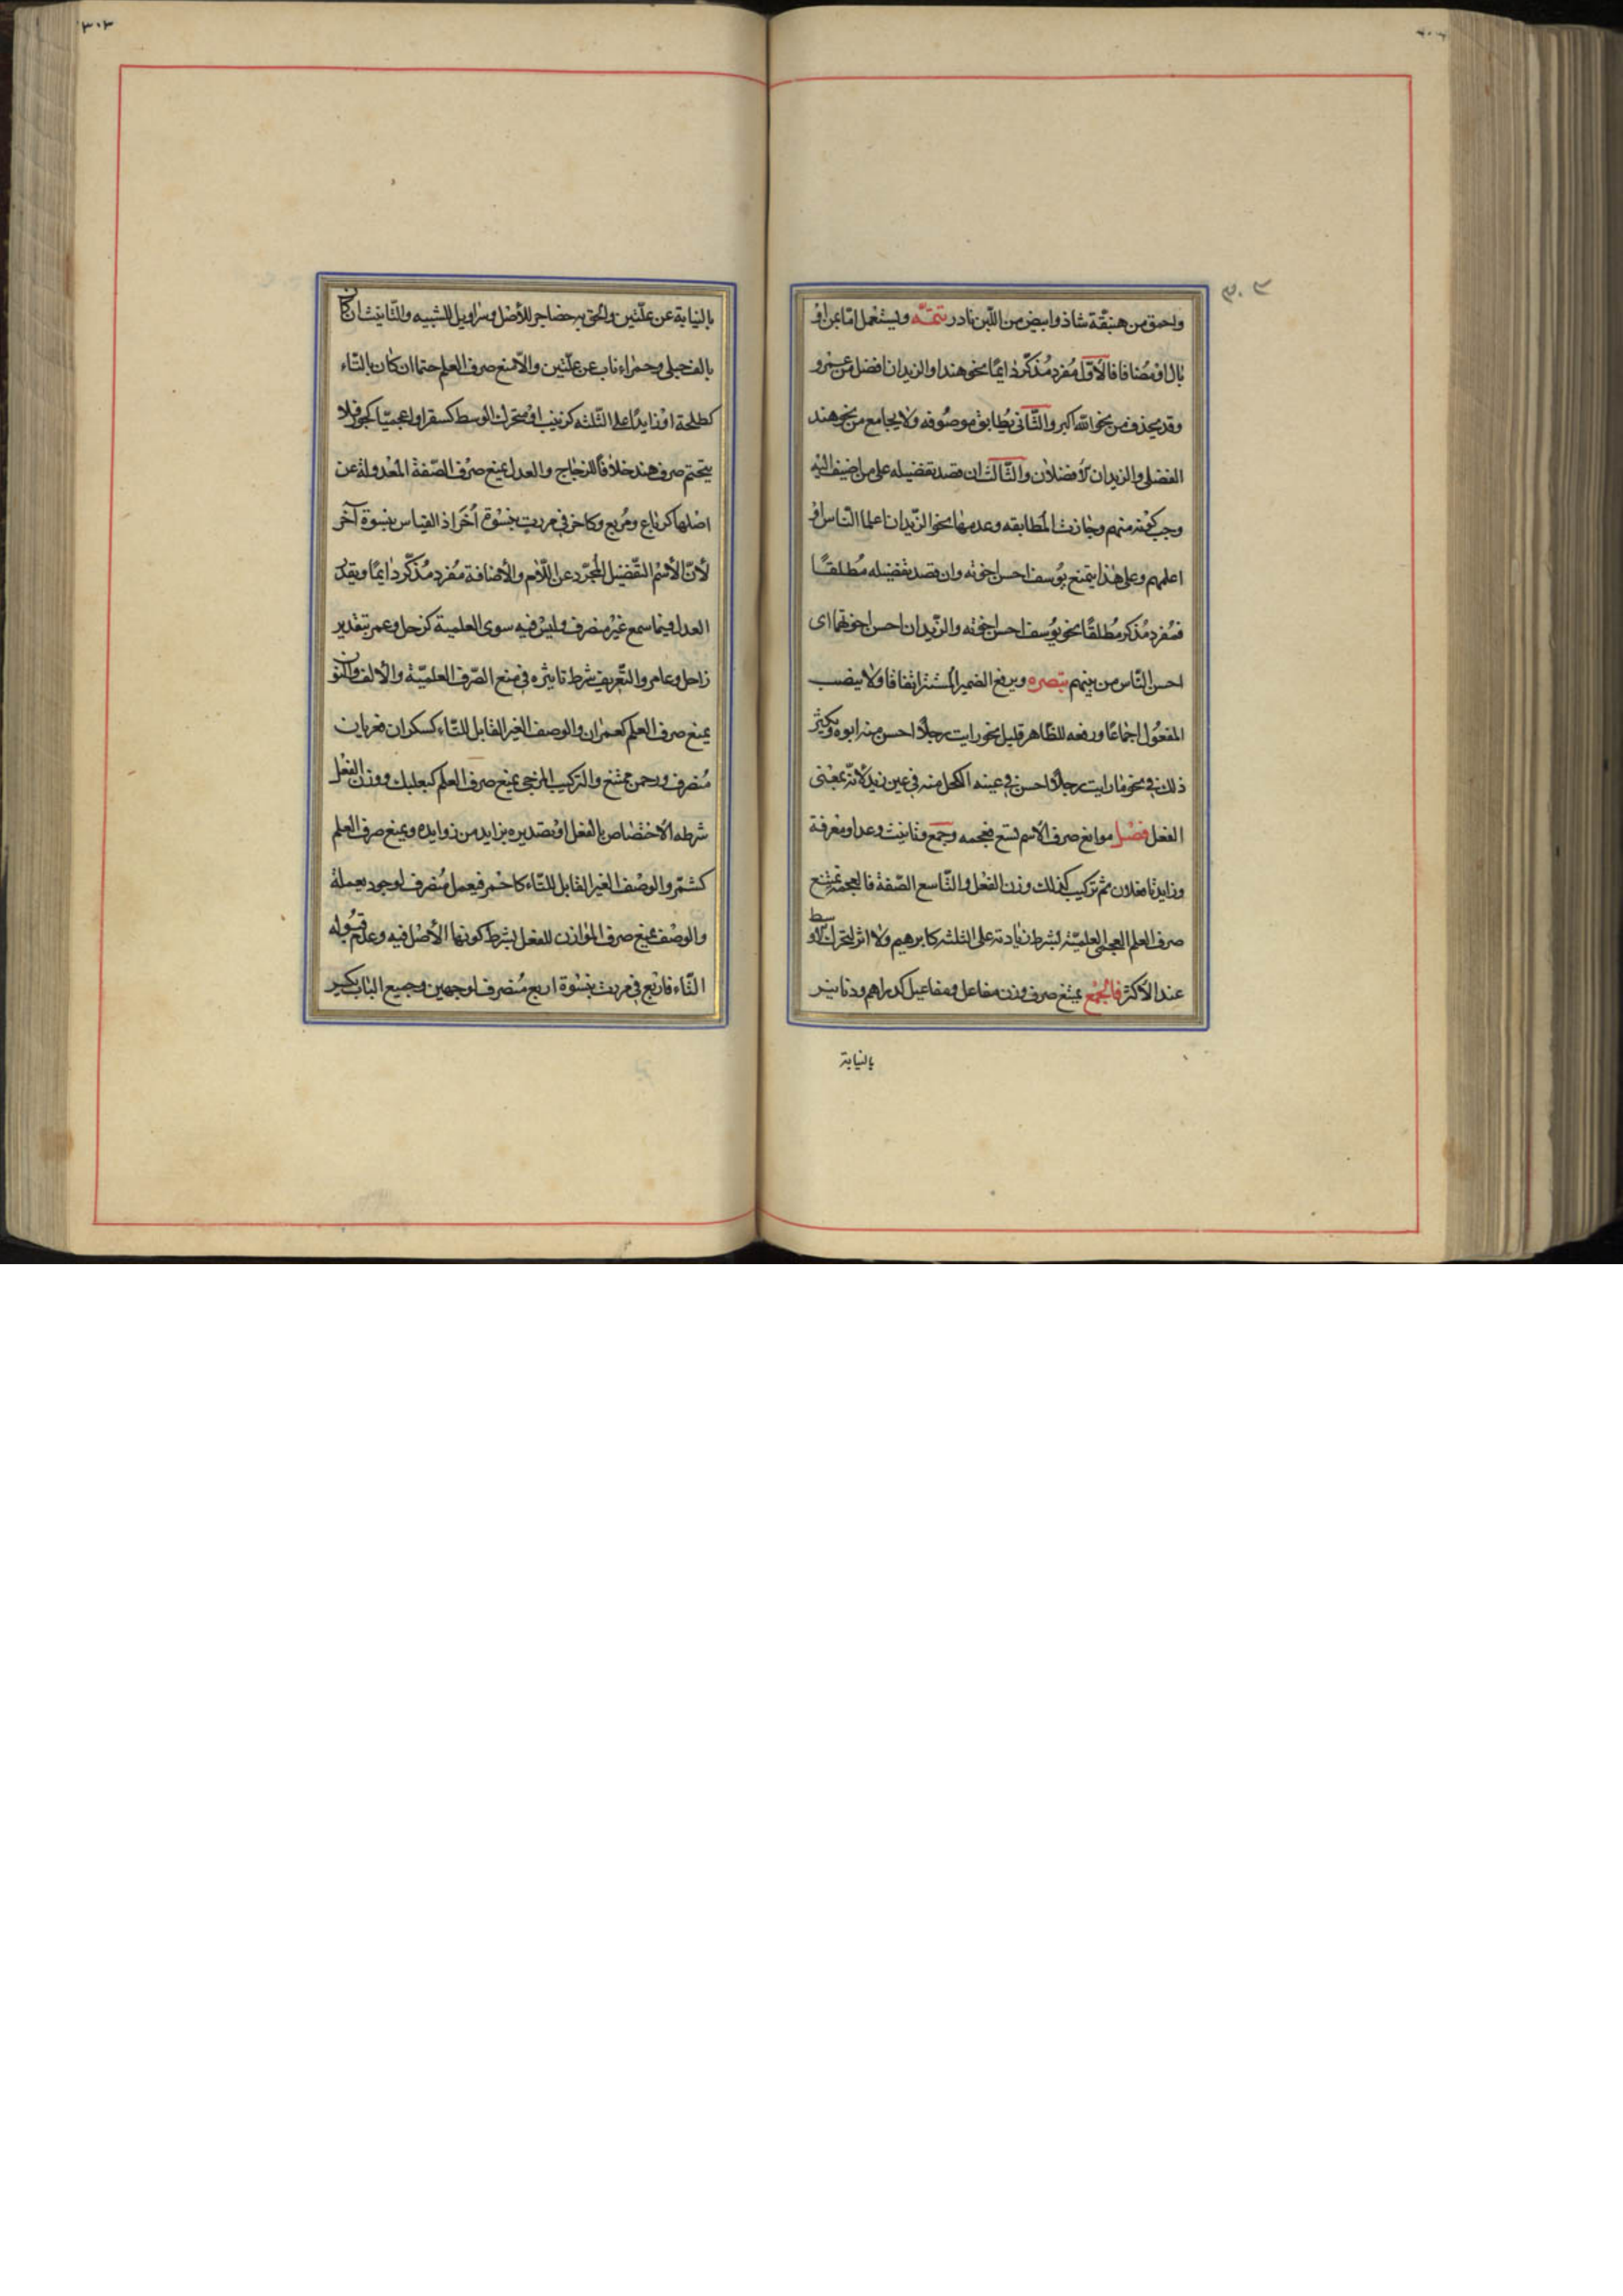 ٣٠٢
واحمق من هبنّقة شاذ وابيض من اللّبن نادر تتمّة ويستعمل امّا بمن او
بال او مضافا فالأوّل مفرد مذكّر دايمًا نحو هند او الزيدان افضل من عمرو
وقد يحذف من نحو الله اكبر والثّانى يطابق موصوفه ولا يجامع من نحو هند
الفضلى والزيدان الأفضلان والثّالث ان قصد تفضيله على من اضيف اليه
وجب كونه منهم وجازت المطابقه وعدمها نحو الزّيدان اعلما النّاس او
اعلمهم وعلى هذا يمتنع يوسف احسن اخوته وان قصد تفضيله مطلقًا
فمفرد مذكر مطلقًا نحو يوسف احسن اخوته والزّيدان احسن اخوتهما اى
احسن النّاس من بينهم تبصره ويرفع الضمير المستتر اتفاقا ولا ينصب
المفعول اجماعًا ورفعه للظّاهر قليل نحو رايت رجلًا احسن منه ابوه ويكثر
ذلك فى نحو ما رايت رجلًا احسن فى عينه الكحل منه فى عين زيد لأنّه بمعنى
الفعل فصل موانع صرف الاسم تسع فعجمه وجمع وتانيث وعدل ومعرفة
وزايدتا فعلان ثم تركيب كذلك وزن الفعل والتّاسع الصّفة فالعجمة تمنع
صرف العلم العجمى العلميّة بشرط زيادته على الثلثه كابرهيم ولا اثر لتحرك الاوسط
عند الأكثر فالجمع يمنع صرف وزن مفاعل ومفاعيل كدراهم ودنانير
بالنيابة
٣٠٣
بالنيابة عن علّتين والحق به حضاجر للأصل وسراويل للشبيه والتّانيث ان كان
بالف حبلى وحمراء ناب عن علّتين والّا منع صرف العلم حتما ان كان بالتّاء
كطلحة او زايدًا على الثّلثه كزينب او متحرك الوسط كسقر او اعجميّا كجور فلا
يتحتم صرف هند خلافًا للزجاج والعدل يمنع صرف الصّفة المعدولة عن
اصلها كرباع ومربع وكاخر فى مررت بنسوة اُخَر اذ القياس بنسوة آخر
لأنّ الأسم التّفضيل المجرّد عن اللّام والأضافة مفرد مذكّر دايمًا ويقدّر
العدل فيما سمع غير منصرف وليس فيه سوى العلمية كزحل وعمر بتقدير
زاحل وعامر والتّعريف شرط تاثيره فى منع الصّرف العلميّة والألف والنون
يمنع صرف العلم كعمران والوصف الغير القابل للتّاء كسكران فعريان
منصرف ورحمن ممتنع والتركيب المزجى يمنع صرف العلم كبعلبك ووزن الفعل
شرطه الاختصاص بالفعل او تصديره بزايد من زوايده ويمنع صرف العلم
كشمّر والوصف الغير القابل للتّاء كاحمر فيعمل منصرف لوجود يعملة
والوصف يمنع صرف الموازن للفعل بشرط كونها الأصل فيه وعدم قبوله
التّاء فاربع فى مررت بنسوة اربع منصرف لوجهين وجميع الباب يكسر